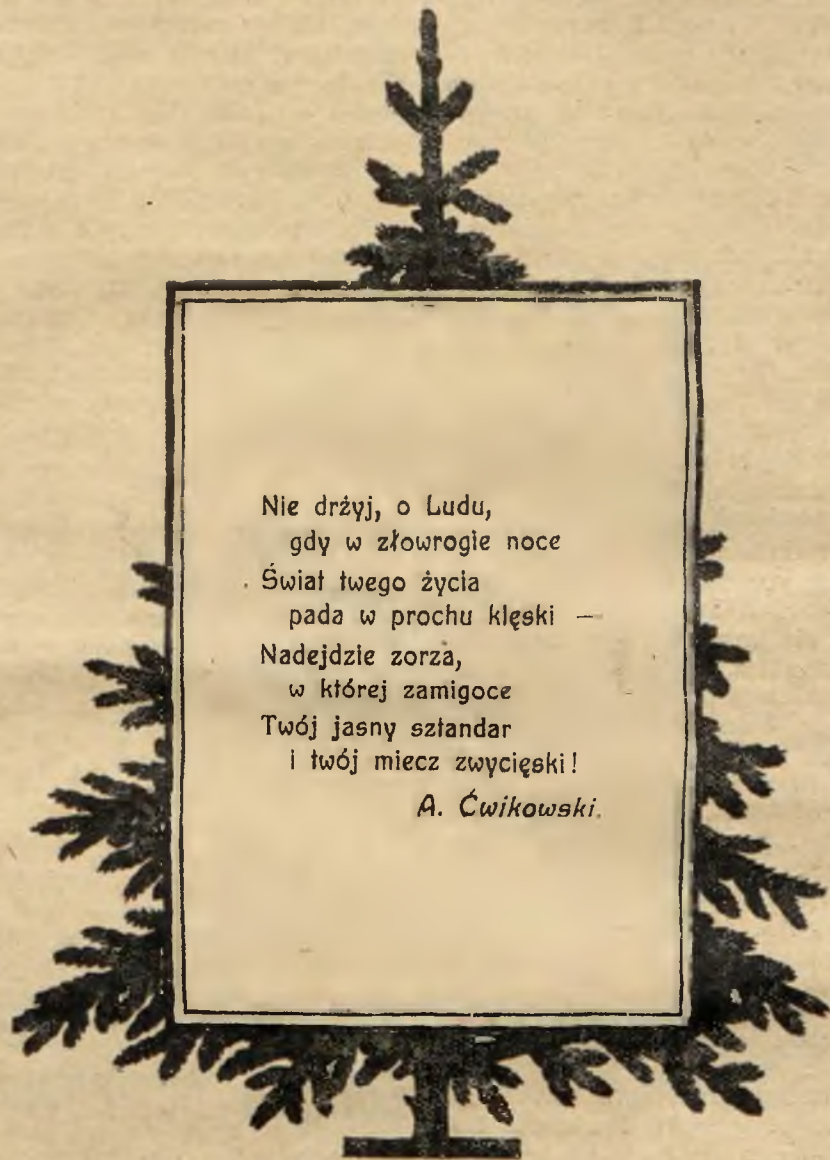 Nie drżyj, o Ludu,
gdy w złowrogie noce
Świat twego życia
pada w prochu klęski —
Nadejdzie zorza,
w której zamigoce
Twój jasny sztandar
i twój miecz zwycięski!
A. Ćwikowski.